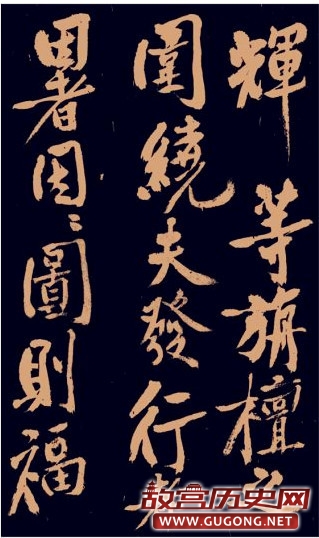 輝 等旃檀之
圍繞夫發行者
署因〻圓則福
故宫历史网
WWW.GUGONG.NET